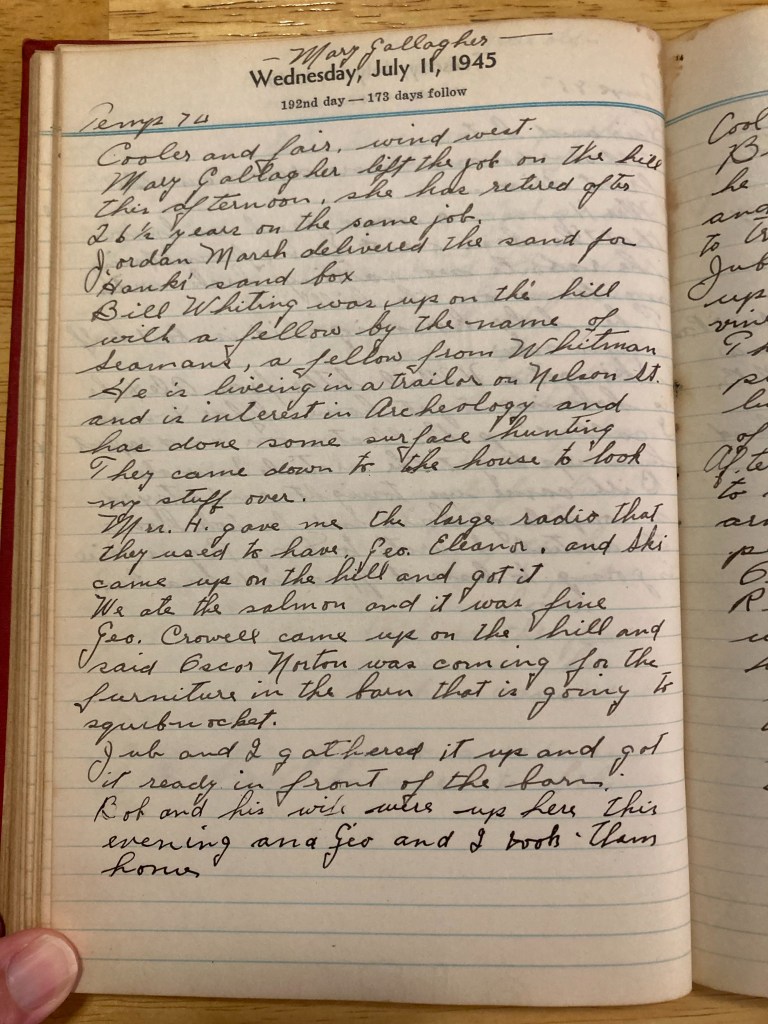 — Mary Gallagher —
Wednesday, July 11, 1945
192nd day — 173 days follow
Temp 74
Cooler and fair, wind west.
Mary Gallagher left the job on the hill
this afternoon, she has retired after
26½ years on the same job.
Jordan Marsh delivered the sand for
Hanks' sand box
Bill Whiting was up on the hill
with a fellow by the name of
Seamans, a fellow from Whitman
He is liveing in a trailor on Nelson St.
and is interest in Archeology and
has done some surface hunting
They came down to the house to look
my stuff over.
Mrs. H. gave me the large radio that
they used to have. Geo. Eleanor, and Ski
came up on the hill and got it
We ate the salmon and it was fine
Geo. Crowell came up on the hill and
said Oscor Norton was coming for the
furniture in the barn that is going to
squibnocket.
Jub and I gathered it up and got
it ready in front of the barn.
Bob and his wife were up here this
evening and Geo and I took them
home
Cool
B
he
and
to
Jub
up
vin
Th
p
lu
of
Afte
to
arn
p
6
R